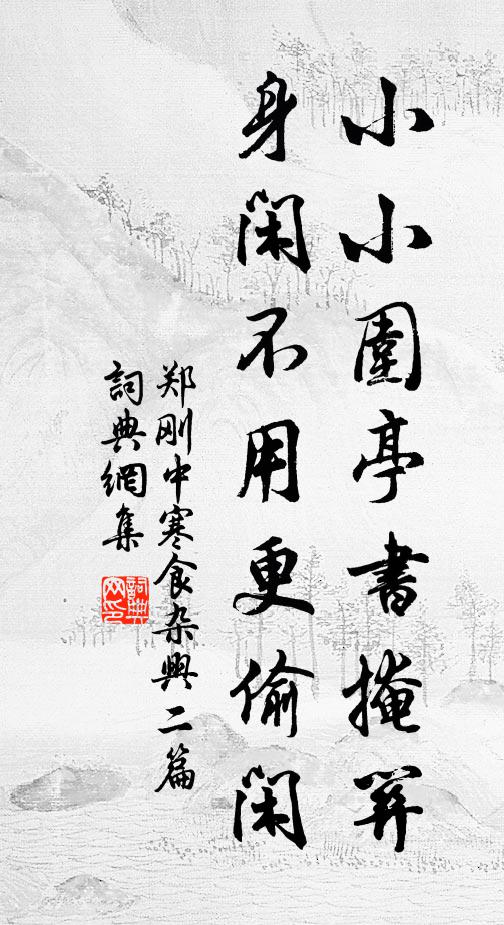 小小園亭書掩關
身閑不用更偷閑
郑刚中寒食杂興二篇
詞典網集